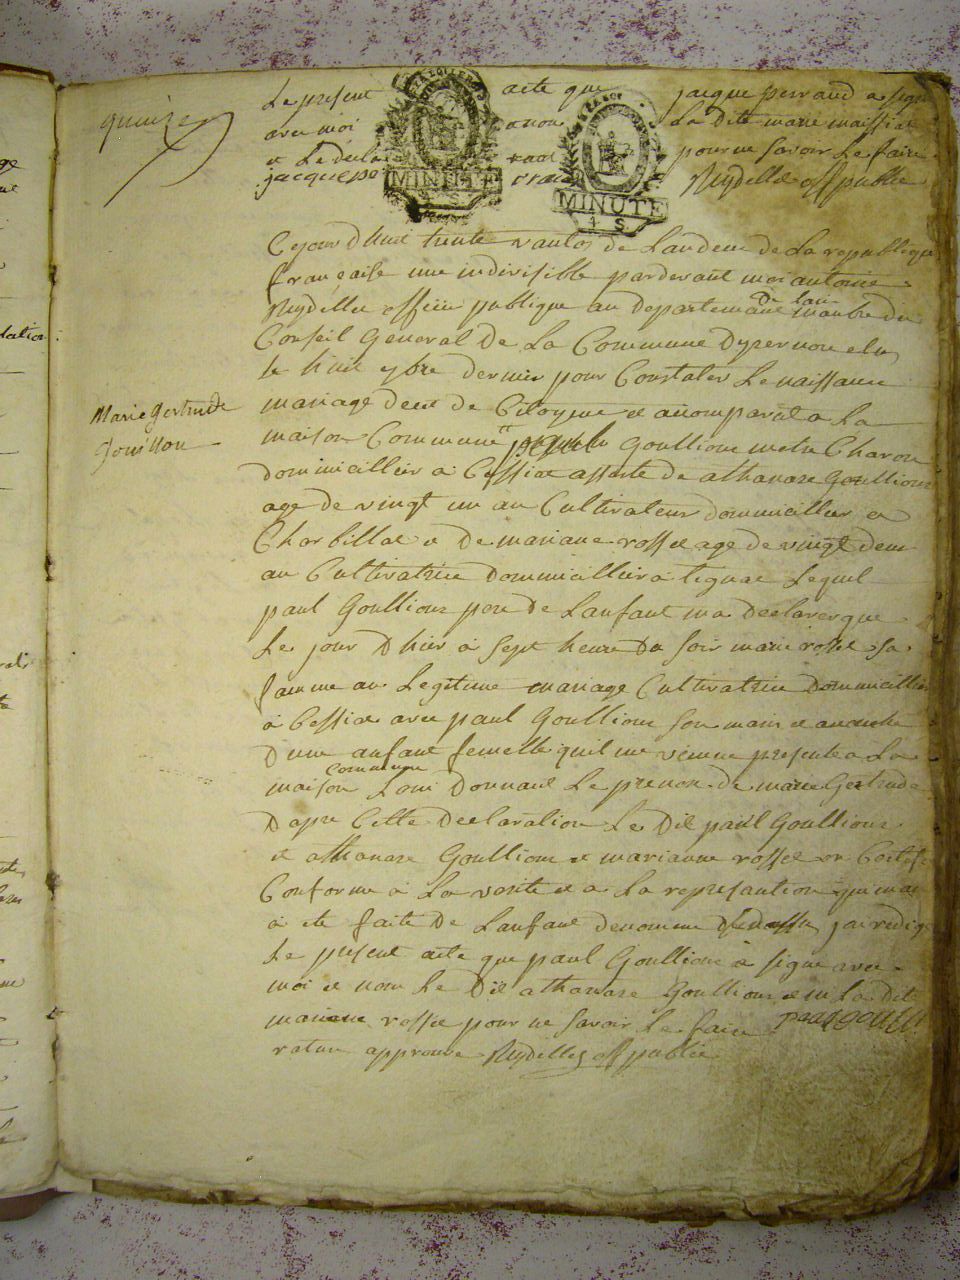 quinze
Le present acte que jacque perraud a signé
avec moi et non La dite marie maissiat
et Le decla pour ne savoir Le faire
jacque pe Niydelle off publie
MINUTE
MINUTE
4 S
Cejour dhuit trente vantos de Landeux de La republique
française une indivisible pardevant moi antoine
Niydelle officier publique au departemant de lain manbre du
Conseil General de La Commune Dyzernore elu
le huit 9bre dernier pour Constater Le naissance
mariage decé de Citoyene et a comparut a La
maison Commune paul Goullioux metre Charon
dommicillier a Cessiat assisté de athanaze Goullioux
age de vingt un an Cultivateur dommicillier a
Charbillat et De mariane rosset age de vingt deux
an Cultivatrice Dommicillier a tignat Lequel
paul Goullioux pere de Lanfant ma declarer que
Le jour Dhier a sept heure Du soir marie rosset sa
famme an Legitime mariage Cultivatrice Dommicillier
a Cessiat avec paul Goullioux son mari et
Dune anfant femelle quil me presente a La
maison Commune Lomi Donnant Le prenon de marie Gertrude
Dapre Cette Declaration Le Dit paul Goullioux
et athanaze Goullioux et marianne rosset on Certifi
Conforme a La verite et a La represantion qui mai
a ete faite de Lanfant denomme jai redigé
Le present acte que paul Goullioux a signe avec
moi et nom Le Dit athanaze Goullioux et ni La dit
mariane rosset pour ne savoir Le faire paul goullioux
rature approuve Niydelle off publie
Marie Gertrude
Gouillon